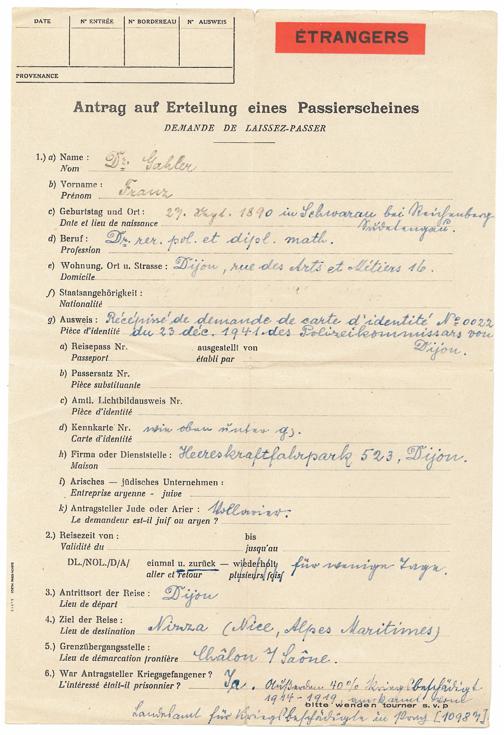 DATE N° ENTRÉE N° BORDEREAU N° AUSWEIS
ÉTRANGERS
PROVENANCE
Antrag auf Erteilung eines Passierscheines
DEMANDE DE LAISSEZ-PASSER
1.) a) Name : Dr. Gahler
Nom
b) Vorname : Franz
Prénom
c) Geburtstag und Ort : 27. 1890 in Schwarau bei Reichenberg
Date et lieu de naissance Sudetengau.
d) Beruf : Dr. rer. pol. et dipl. math.
Profession
e) Wohnung, Ort u. Strasse : Dijon, rue des Arts et Métiers 16.
Domicile
f) Staatsangehörigkeit :
Nationalité
g) Ausweis : Récépissé de demande de carte d'identité N° 0022
Pièce d'identité du 23 déc. 1941 des Polizeikommissars von
Dijon.
a) Reisepass Nr. ausgestellt von
Passeport établi par
b) Passersatz Nr.
Pièce substituante
c) Amtl. Lichtbildausweis Nr.
Pièce d'identité
d) Kennkarte Nr. wie oben unter g).
Carte d'identité
h) Firma oder Dienststelle : Heereskraftfahrpark 523, Dijon.
Maison
i) Arisches — jüdisches Unternehmen :
Entreprise aryenne - juive
k) Antragsteller Jude oder Arier : Vollarier.
Le demandeur est-il juif ou aryen ?
2.) Reisezeit von : bis
Validité du jusqu'au
DL./NOL./D/A/ einmal u. zurück — wiederholt für wenige Tage.
aller et retour plusieurs fois
3.) Antrittsort der Reise : Dijon
Lieu de départ
4.) Ziel der Reise : Nizza (Nice, Alpes Maritimes)
Lieu de destination
5.) Grenzübergangsstelle : Châlon s/ Saône.
Lieu de démarcation frontière
6.) War Antragsteller Kriegsgefangener ? Ja. Außerdem 40% kriegsbeschädigt
L'intéressé était-il prisonnier ? 1914-1919, anerkannt vom
bitte wenden tourner s. v. p
Landesamt für Kriegsbeschädigte in Prag [10984]